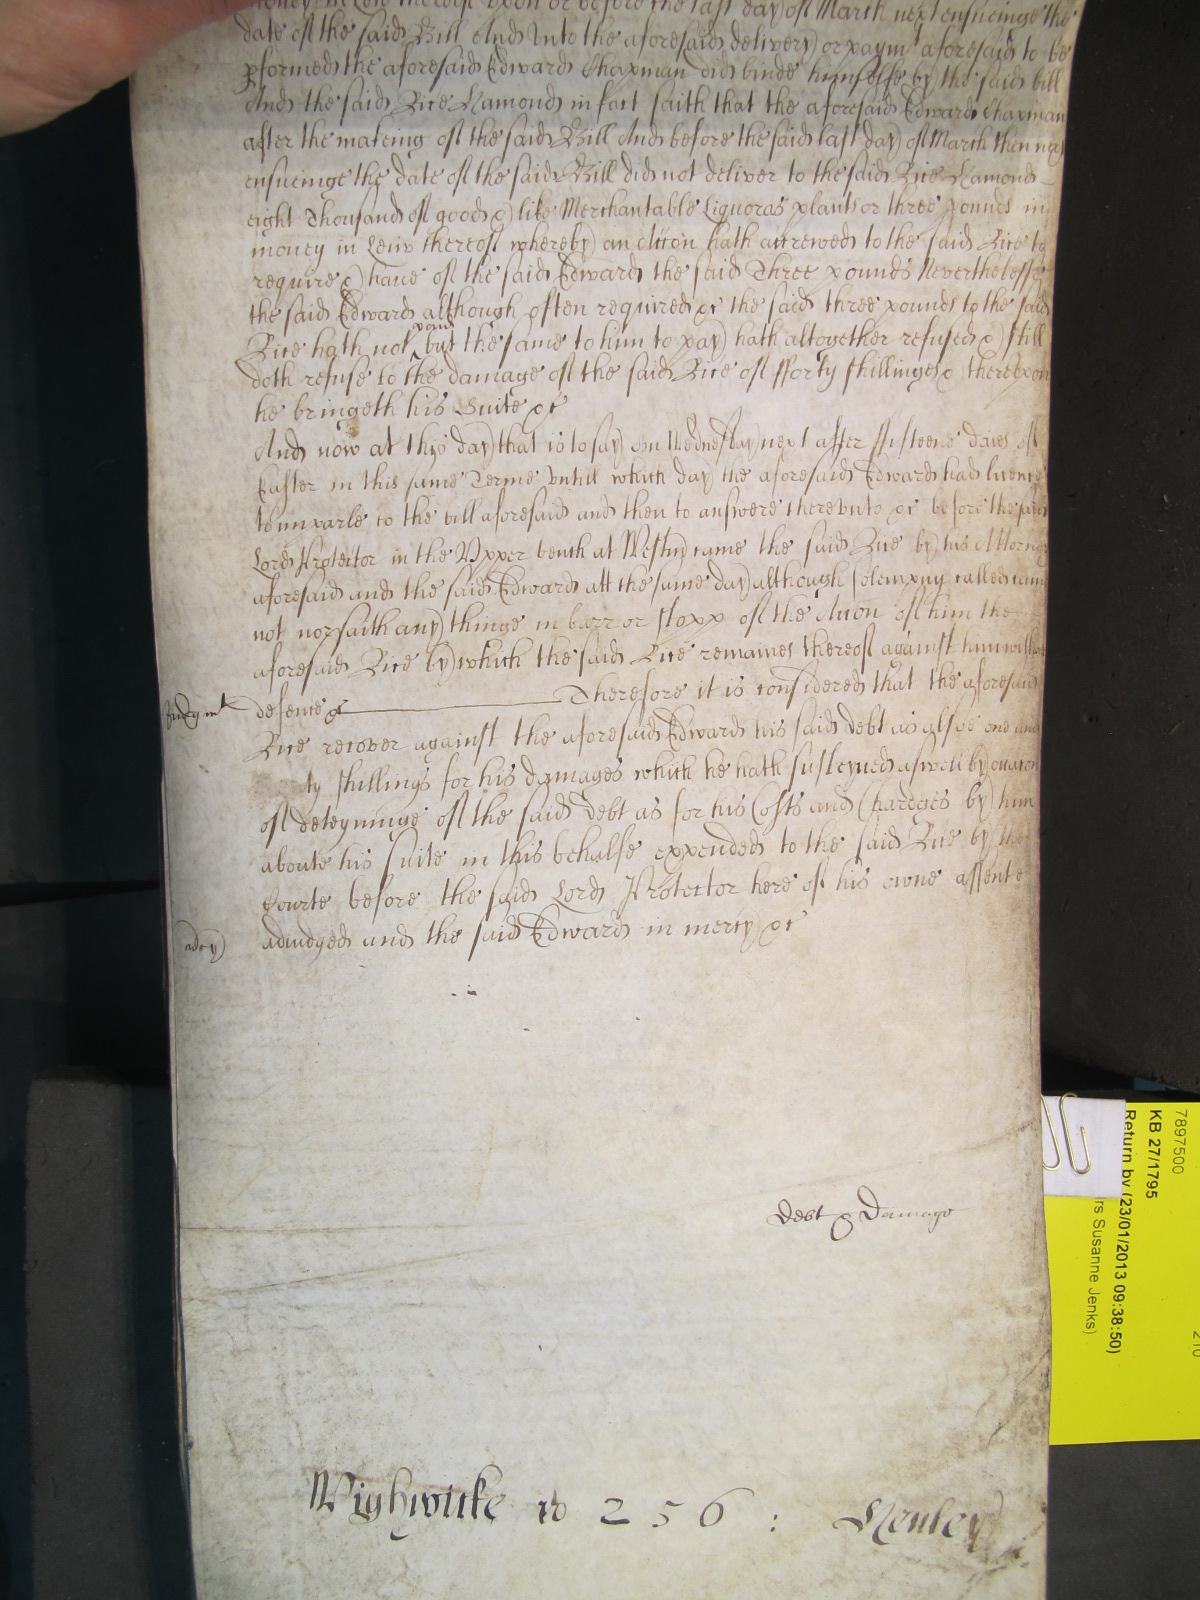 money in Leiu thereof upon or before the last day of March next ensueinge the
date of the said Bill And unto the aforesaid delivery or paymt aforesaid to be
pformed the aforesaid Edward Chapman did binde himselfe by the said bill
And the said Rice Hamond in fact saith that the aforesaid Edward Chapman
after the makeing of the said Bill And before the said last day of March then next
ensueinge the date of the said Bill did not deliver to the said Rice Hamond
eight Thousand of good & like Merchantable Liquoras plants or three pounds in
money in Leiu thereof whereby an Accon hath accrewed to the said Rice to
require & have of the said Edward the said Three pounds Neverthelesse
the said Edward although often required &c the said three pounds to the said
Rice hath not payd but the same to him to pay hath altogether refused & still
doth refuse to the damage of the said Rice of fforty shillinges & thereupon
he bringeth his Suite &c
And now at this day that is to say on Wednesday next after fifteene daies of
Easter in this same Terme Untill which day the aforesaid Edward had licence
to imparle to the bill aforesaid and then to answere thereunto &c before the said
Lord Protector in the Upper bench at Westm came the said Rice by his Attorney
aforesaid and the said Edward att the same day although solempny called came
not nor saith any thinge in barr or stopp of the Accon of him the
aforesaid Rice by which the said Rice remaines thereof against him without
Judgmt
defence &c Therefore it is considered that the aforesaid
Rice recover against the aforesaid Edward his said debt as alsoe one and
ty shillings for his damages which he hath susteyned aswell by occacon
of deteyninge of the said debt as for his Costs and Chardges by him
aboute his suite in this behalfe expended to the said Rice by the
Courte before the said Lord Protector here of his owne assente
mcy
adiudged and the said Edward in mercy &c
Debt & Damage
Wighwicke ro 256 : Henley
7897500
KB 27/1795
Return by (23/01/2013 09:38:50)
rs Susanne Jenks)
210